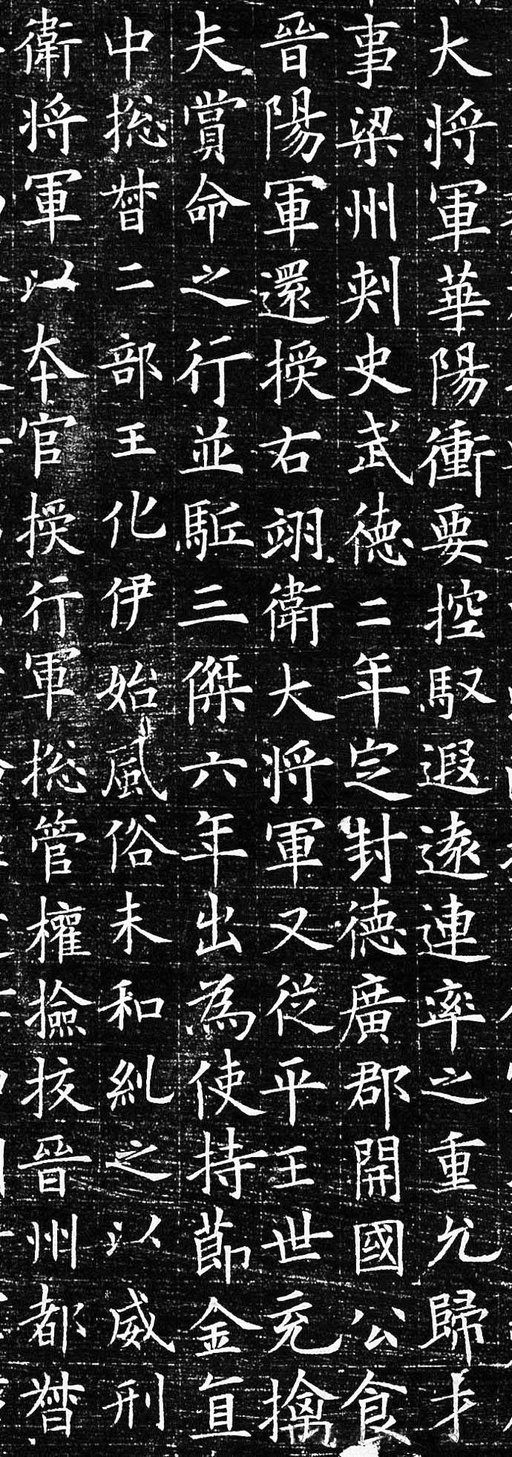 大将軍華陽衝要控馭遐遠連率之重允歸才
事梁州刾史武德二年㝎封德廣郡開國公食
晉陽軍還授右翊衛大将軍又從平王世充擒
夫賞命之行並駈三傑六年出為使持莭金
中捴督二部王化伊始風俗未和糺之以威刑
衛将軍以本官授行軍捴管權撿挍晉州都督